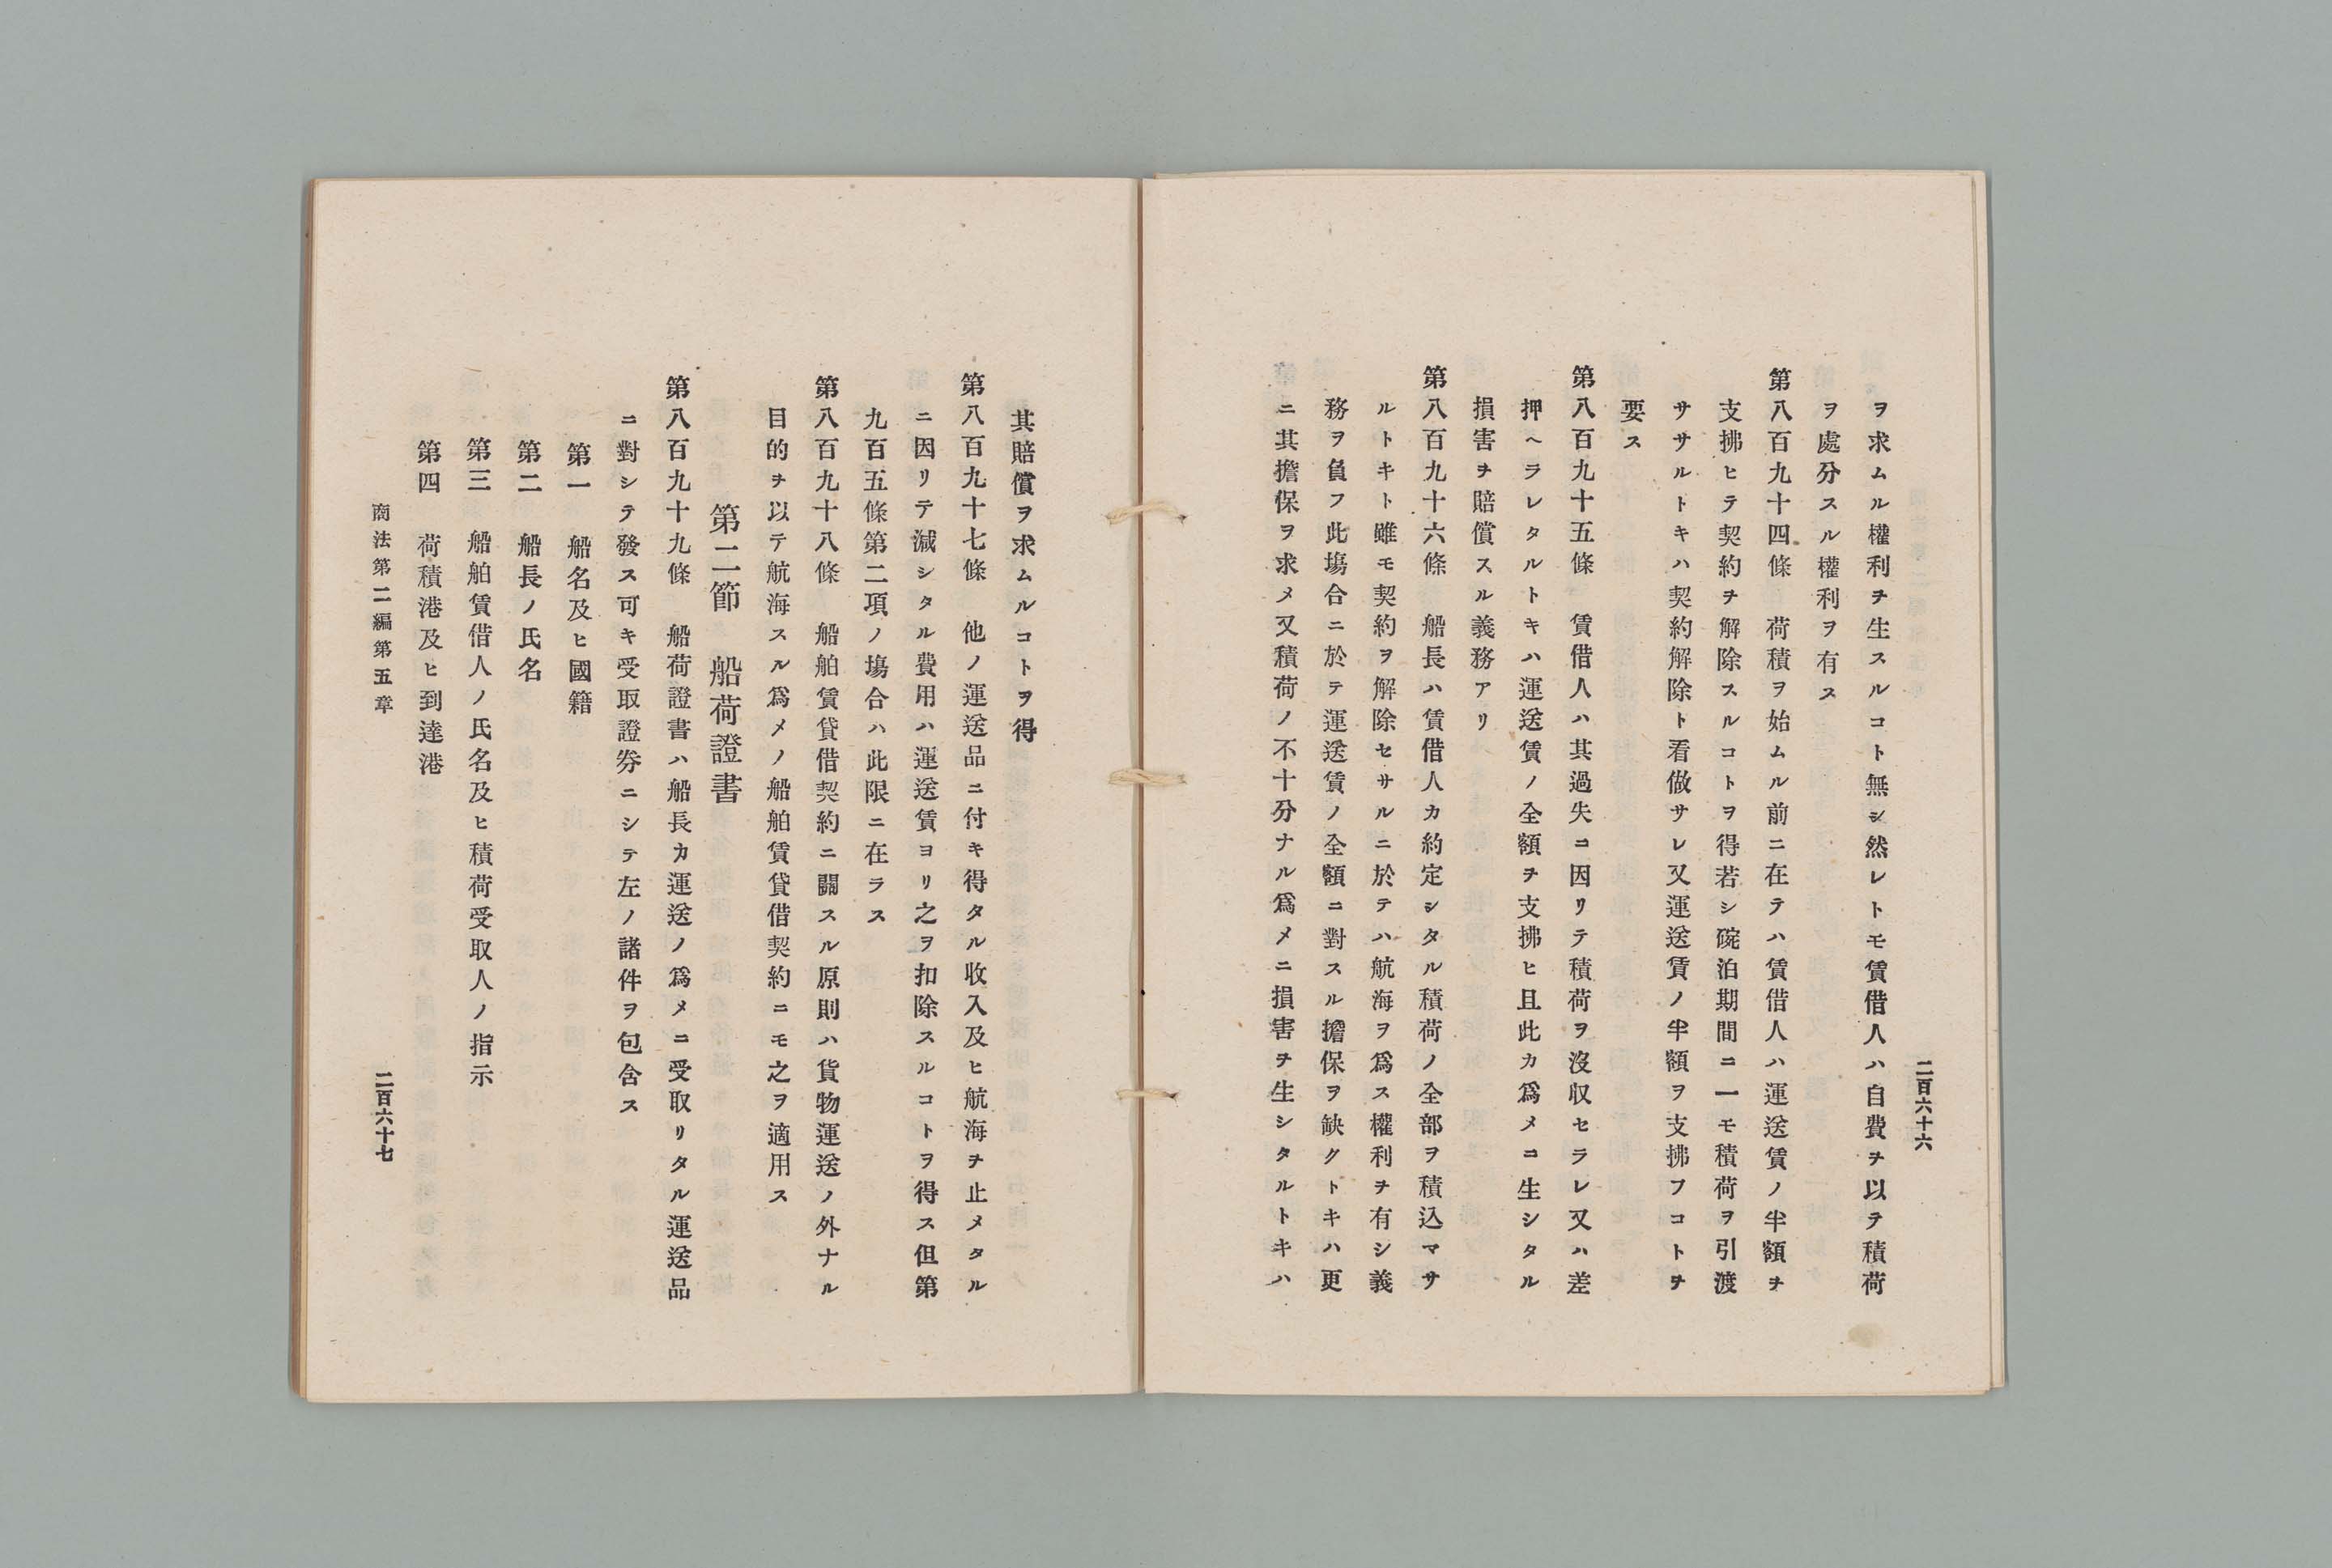 二百六十六
ヲ求ムル權利ヲ生スルコト無シ然レトモ賃借人ハ自費ヲ以テ積荷
ヲ處分スル權利ヲ有ス
第八百九十四條　荷積ヲ始ムル前ニ在テハ賃借人ハ運送賃ノ半額ヲ
支拂ヒテ契約ヲ解除スルコトヲ得若シ碇泊期間ニ一モ積荷ヲ引渡
サヽルトキハ契約解除ト看做サレ又運送賃ノ半額ヲ支拂フコトヲ
要ス
第八百九十五條　賃借人ハ其過失ニ因リテ積荷ヲ沒収セラレ又ハ差
押ヘラレタルトキハ運送賃ノ全額ヲ支拂ヒ且此カ爲メニ生シタル
損害ヲ賠償スル義務アリ
第八百九十六條　船長ハ賃借人カ約定シタル積荷ノ全部ヲ積込マサ
ルトキト雖モ契約ヲ解除セサルニ於テハ航海ヲ爲ス權利ヲ有シ義
務ヲ負フ此塲合ニ於テ運送賃ノ全額ニ對スル擔保ヲ缺クトキハ更
ニ其擔保ヲ求メ又積荷ノ不十分ナル爲メニ損害ヲ生シタルトキハ
其賠償ヲ求ムルコトヲ得
第八百九十七條　他ノ運送品ニ付キ得タル收入及ヒ航海ヲ止メタル
ニ因リテ減シタル費用ハ運送賃ヨリ之ヲ扣除スルコトヲ得ス但第
九百五條第二項ノ塲合ハ此限ニ在ラス
第八百九十八條　船舶賃貸借契約ニ關スル原則ハ貨物運送ノ外ナル
目的ヲ以テ航海スル爲メノ船舶賃貸借契約ニモ之ヲ適用ス
第二節　船荷證書
第八百九十九條　船荷證書ハ船長カ運送ノ爲メニ受取リタル運送品
ニ對シテ發ス可キ受取證券ニシテ左ノ諸件ヲ包含ス
第一　船名及ヒ國籍
第二　船長ノ氏名
第三　船舶賃借人ノ氏名及ヒ積荷受取人ノ指示
第四　荷積港及ヒ到達港
商法第二編第五章
二百六十七